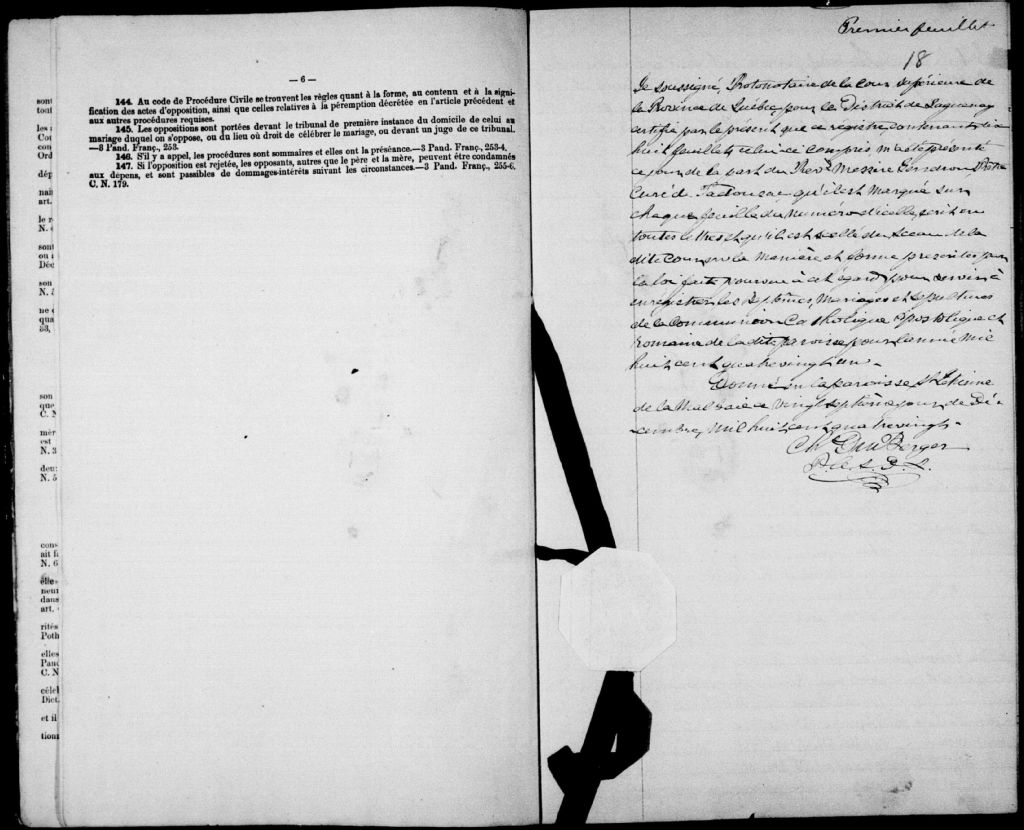 — 6 —
144. Au code de Procédure Civile se trouvent les règles quant à la forme, au contenu et à la signi-
fication des actes d'opposition, ainsi que celles relatives à la péremption décrétée en l'article précédent et
aux autres procédures requises.
145. Les oppositions sont portées devant le tribunal de première instance du domicile de celui au
mariage duquel on s'oppose, ou du lieu où droit de célébrer le mariage, ou devant un juge de ce tribunal.
—3 Pand. Franç., 253.
146. S'il y a appel, les procédures sont sommaires et elles ont la préséance.—3 Pand. Franç., 253-4.
147. Si l'opposition est rejetée, les opposants, autres que le père et la mère, peuvent être condamnés
aux dépens, et sont passibles de dommages-intérêts suivant les circonstances.—3 Pand. Franç., 255-6.
C. N. 179.
sont
tout
les
con
Ord
dép
nai
art.
le r
N.
sont
ou
Déc
son
N.
ne
qua
33,
son
que
C. N
mèr
est
N. 3
deu
N. 5
con
ait
N. 6
elle
neu
dans
art.
rités
Poth
elles
Pan
C. N
célé
Dict
et il
tion
Premier feuillet
18
Je soussigné, Protonotaire de la Cour Supérieure de
la Province de Québec, pour le District de Saguenay
certifie par le présent que ce régistre contenant dix
huit feuillets celui ci compris m'a été présenté
ce jour de la part du Revd Messire Gendron Ptre
Curé de Tadousac qu'il est marqué sur
chaque feuillet du numéro d'icelle écrit en
toutes lettres et qu'il est scellé du Sceau de la
dite Cour en la manière et forme prescrites par
la loi faite et pourvue à cet égard pour servir à
enrégistrer les Baptêmes, Mariages et Sépultures
de la Communion Catholique Apostolique et
Romaine de la dite paroisse pour l'année mil
huit cent quatrevingt un.
Donné en la paroisse St Etienne
de la Malbaie ce vingt septième jour de Dé-
cembre, mil huit cent quatrevingt.
Chs Du Berger
P. C. S. D. S.